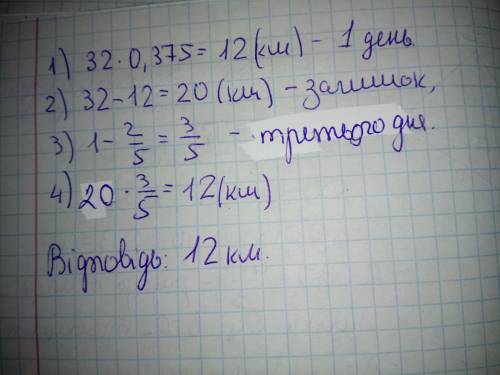 1) 32 · 0,375 = 12 (км) – 1 день.
2) 32 – 12 = 20 (км) – залишок,
3) 1 – 2/5 = 3/5 – третього дня.
4) 20 · 3/5 = 12 (км)
Відповідь: 12 км.